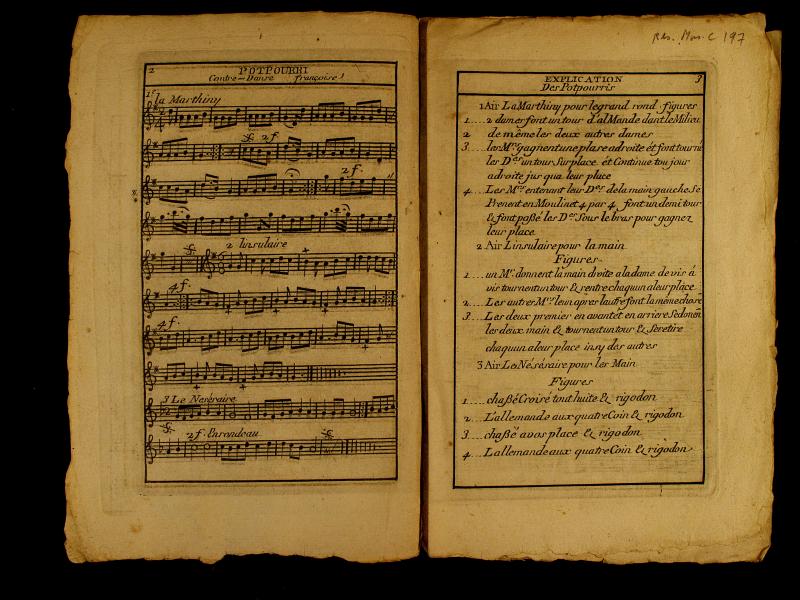 2
POTPOURRI
Contre-Danse françoise
1er
la Marthiny
2 f.
2 f.
2 linsulaire
4 f.
4 f.
3 Le Neséraire
2 f. Enrondeau
Rés. Mus. C 197
3
EXPLICATION
Des Potpourris
1 Air La Marthiny pour le grand rond figures
1.... 2 dames font un tour d'al Mande dant le Milieu
2 de même les deux autres dames
3.... les Mrs gagnent une plase adroite ét font tourné
les Des un tour Sur place ét Continue tou jour
adroite jus qua leur place
4.... Les Mrs entenant leur Des de la main gauche Se
Prenent en Moulinet 4 par 4 font un demi tour
& font paßé les Des Sous le bras pour gagnez
leur place
2 Air Linsulaire pour la main
Figures
1.... un Mr donnent la main droite a la dame de vis á
vis tournent un tour & rentre chaquun a leur place
2.... Les autres Mrs leun apres lautre font la même chose
3.... Les deux premier en avant ét en arriere Se donent
les deux main & tournent un tour & Se retire
chaquun a leur place insy des autres
3 Air Les Néséraire pour les Main
Figures
1.... chaßé Croisé tout huite & rigodon
2.... L'allemande aux quatre Coin & rigodon
3.... chaßé a vos place & rigodon
4.... L'allemande aux quatre Coin & rigodon